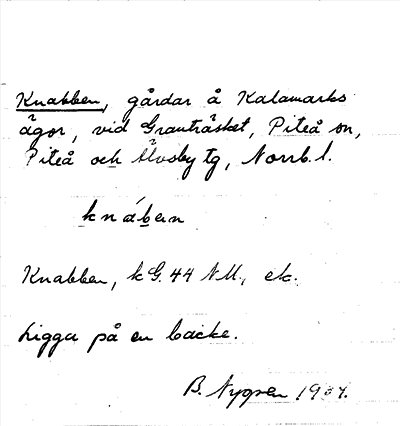 Knabben, gårdar å Kalamarks
ägor, vid Granträsket, Piteå sn,
Piteå och Älvsby tg, Norrb. l.
knábɛn
Knabben, k G. 44 NU, ek.
Ligga på en backe.
B. Nygren 1937.